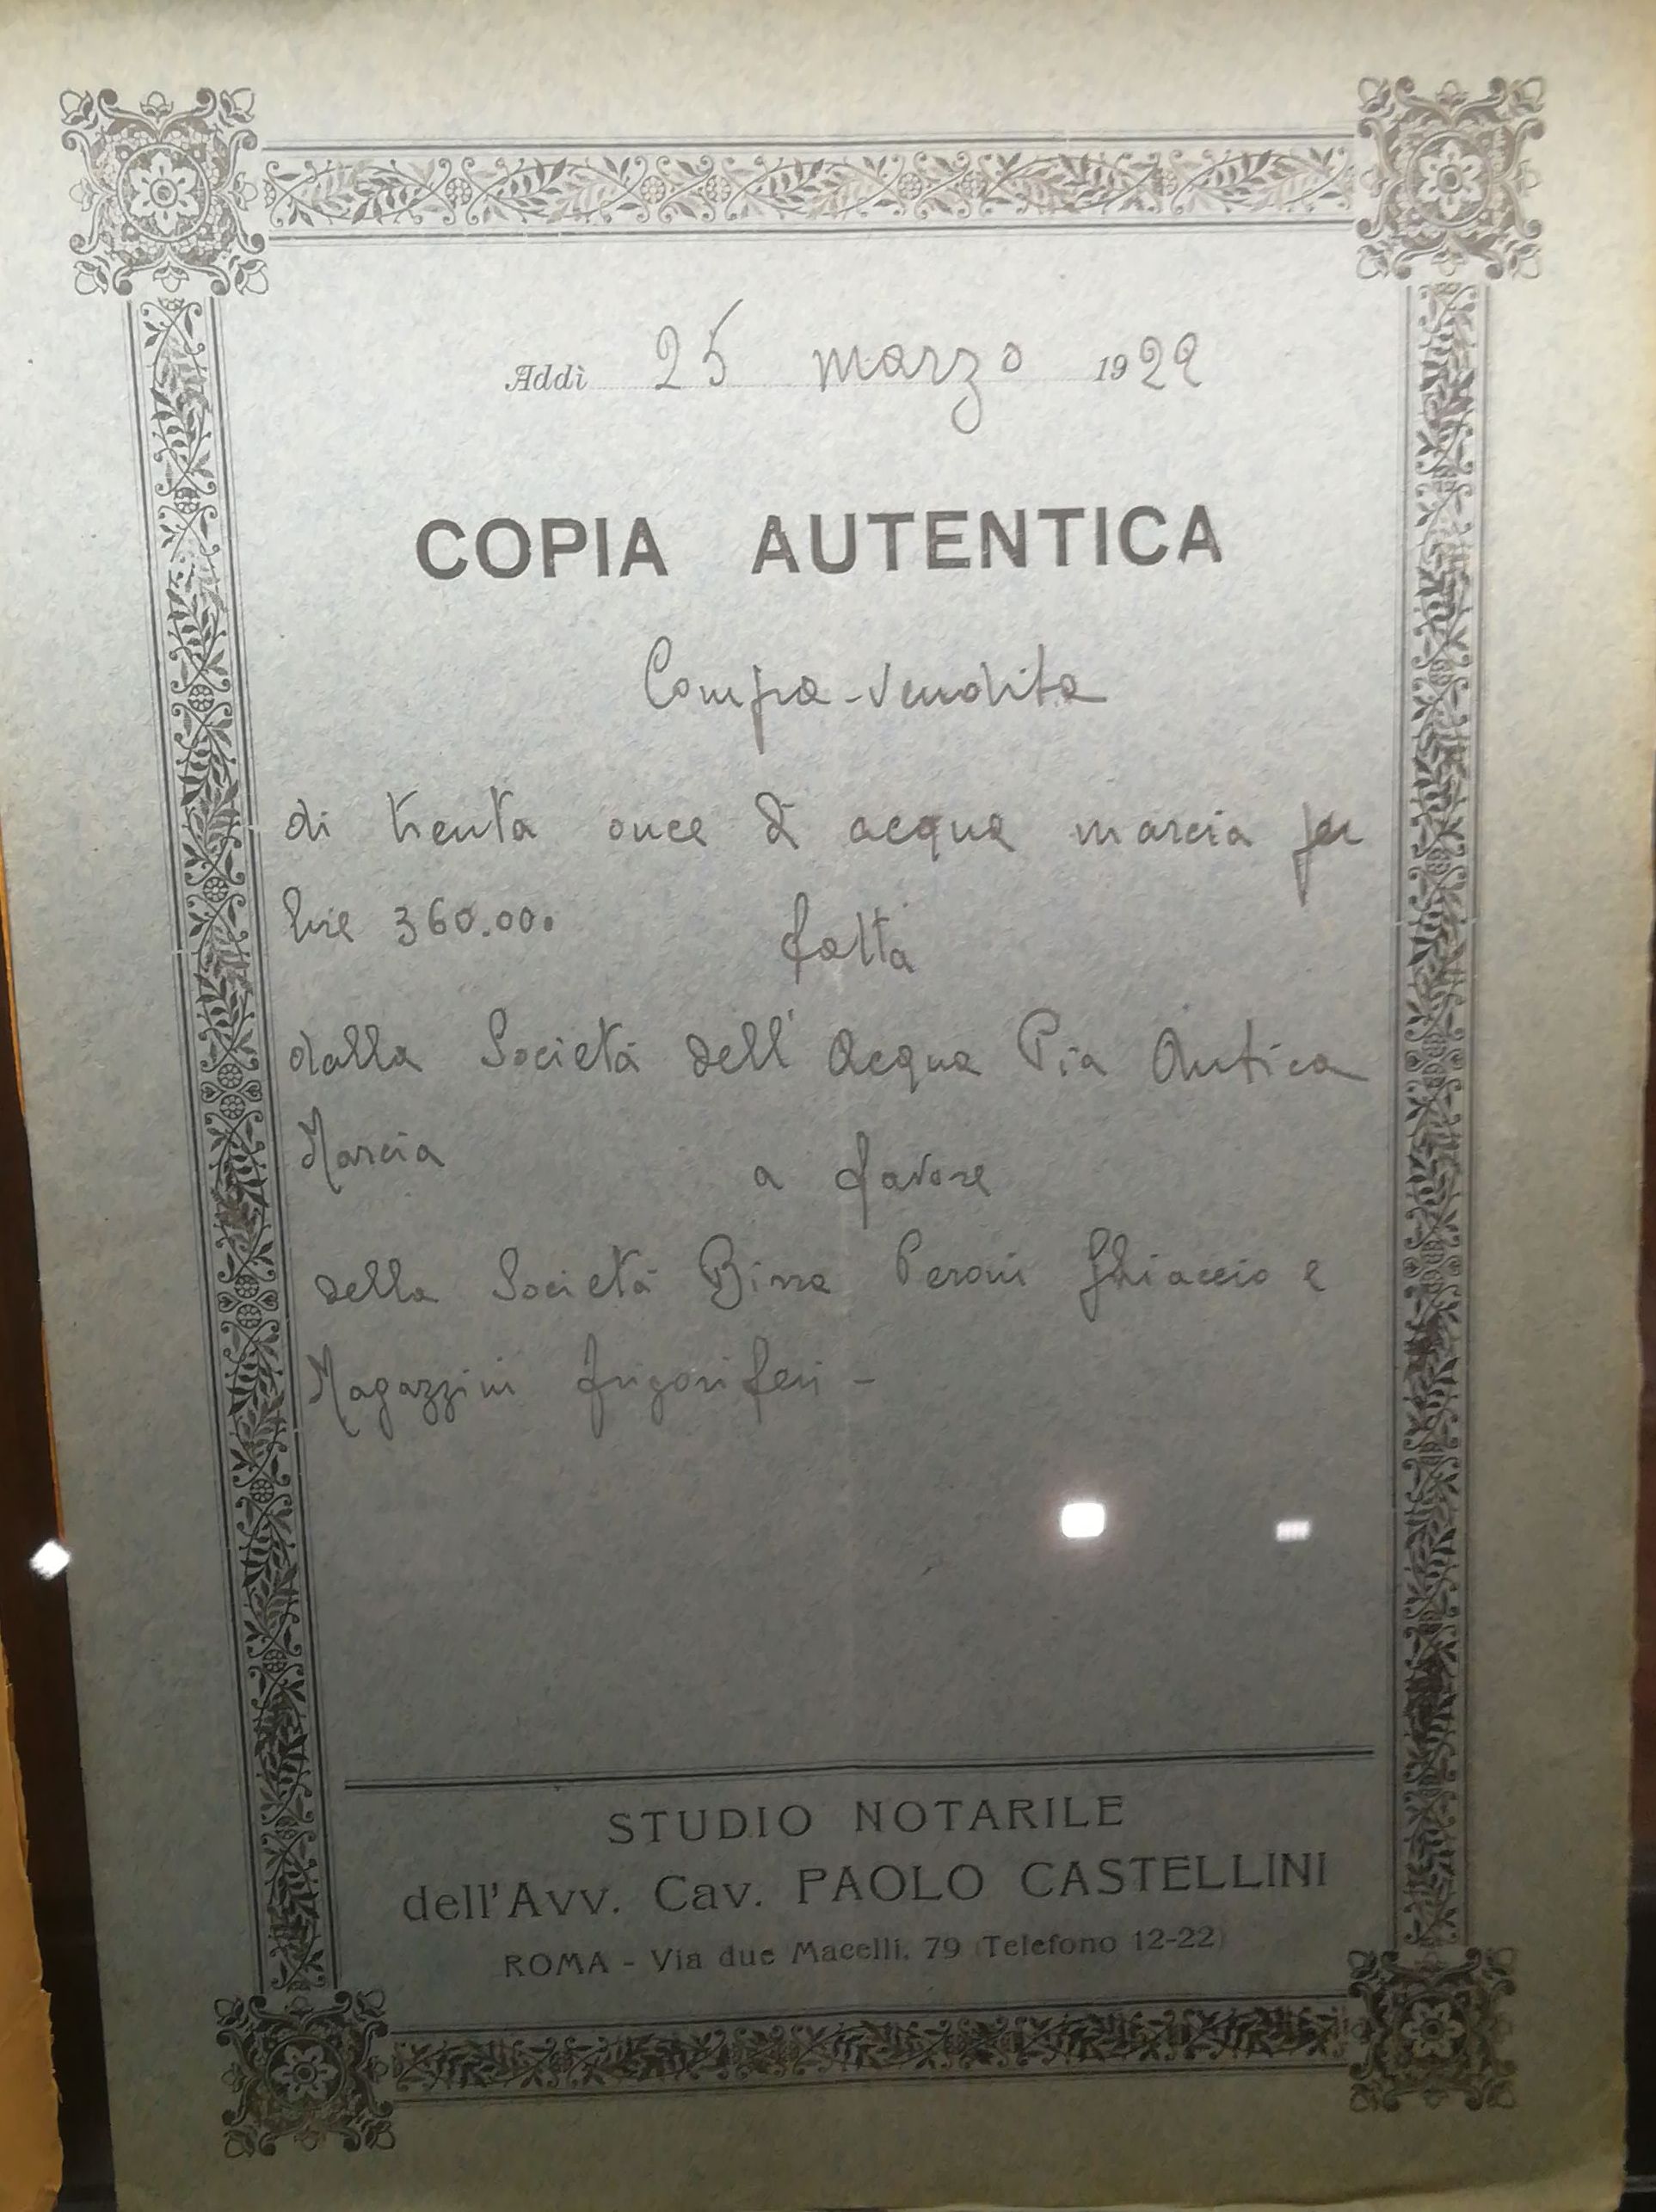 Addì 25 marzo 1922
COPIA AUTENTICA
Compra-Vendita
di trenta once di acqua marcia per
lire 360.000 fatta
dalla Società dell'Acqua Pia Antica
Marcia a favore
della Società Birra Peroni Ghiaccio e
Magazzini frigoriferi -
STUDIO NOTARILE
dell'Avv. Cav. PAOLO CASTELLINI
ROMA - Via due Macelli, 79 (Telefono 12-22)